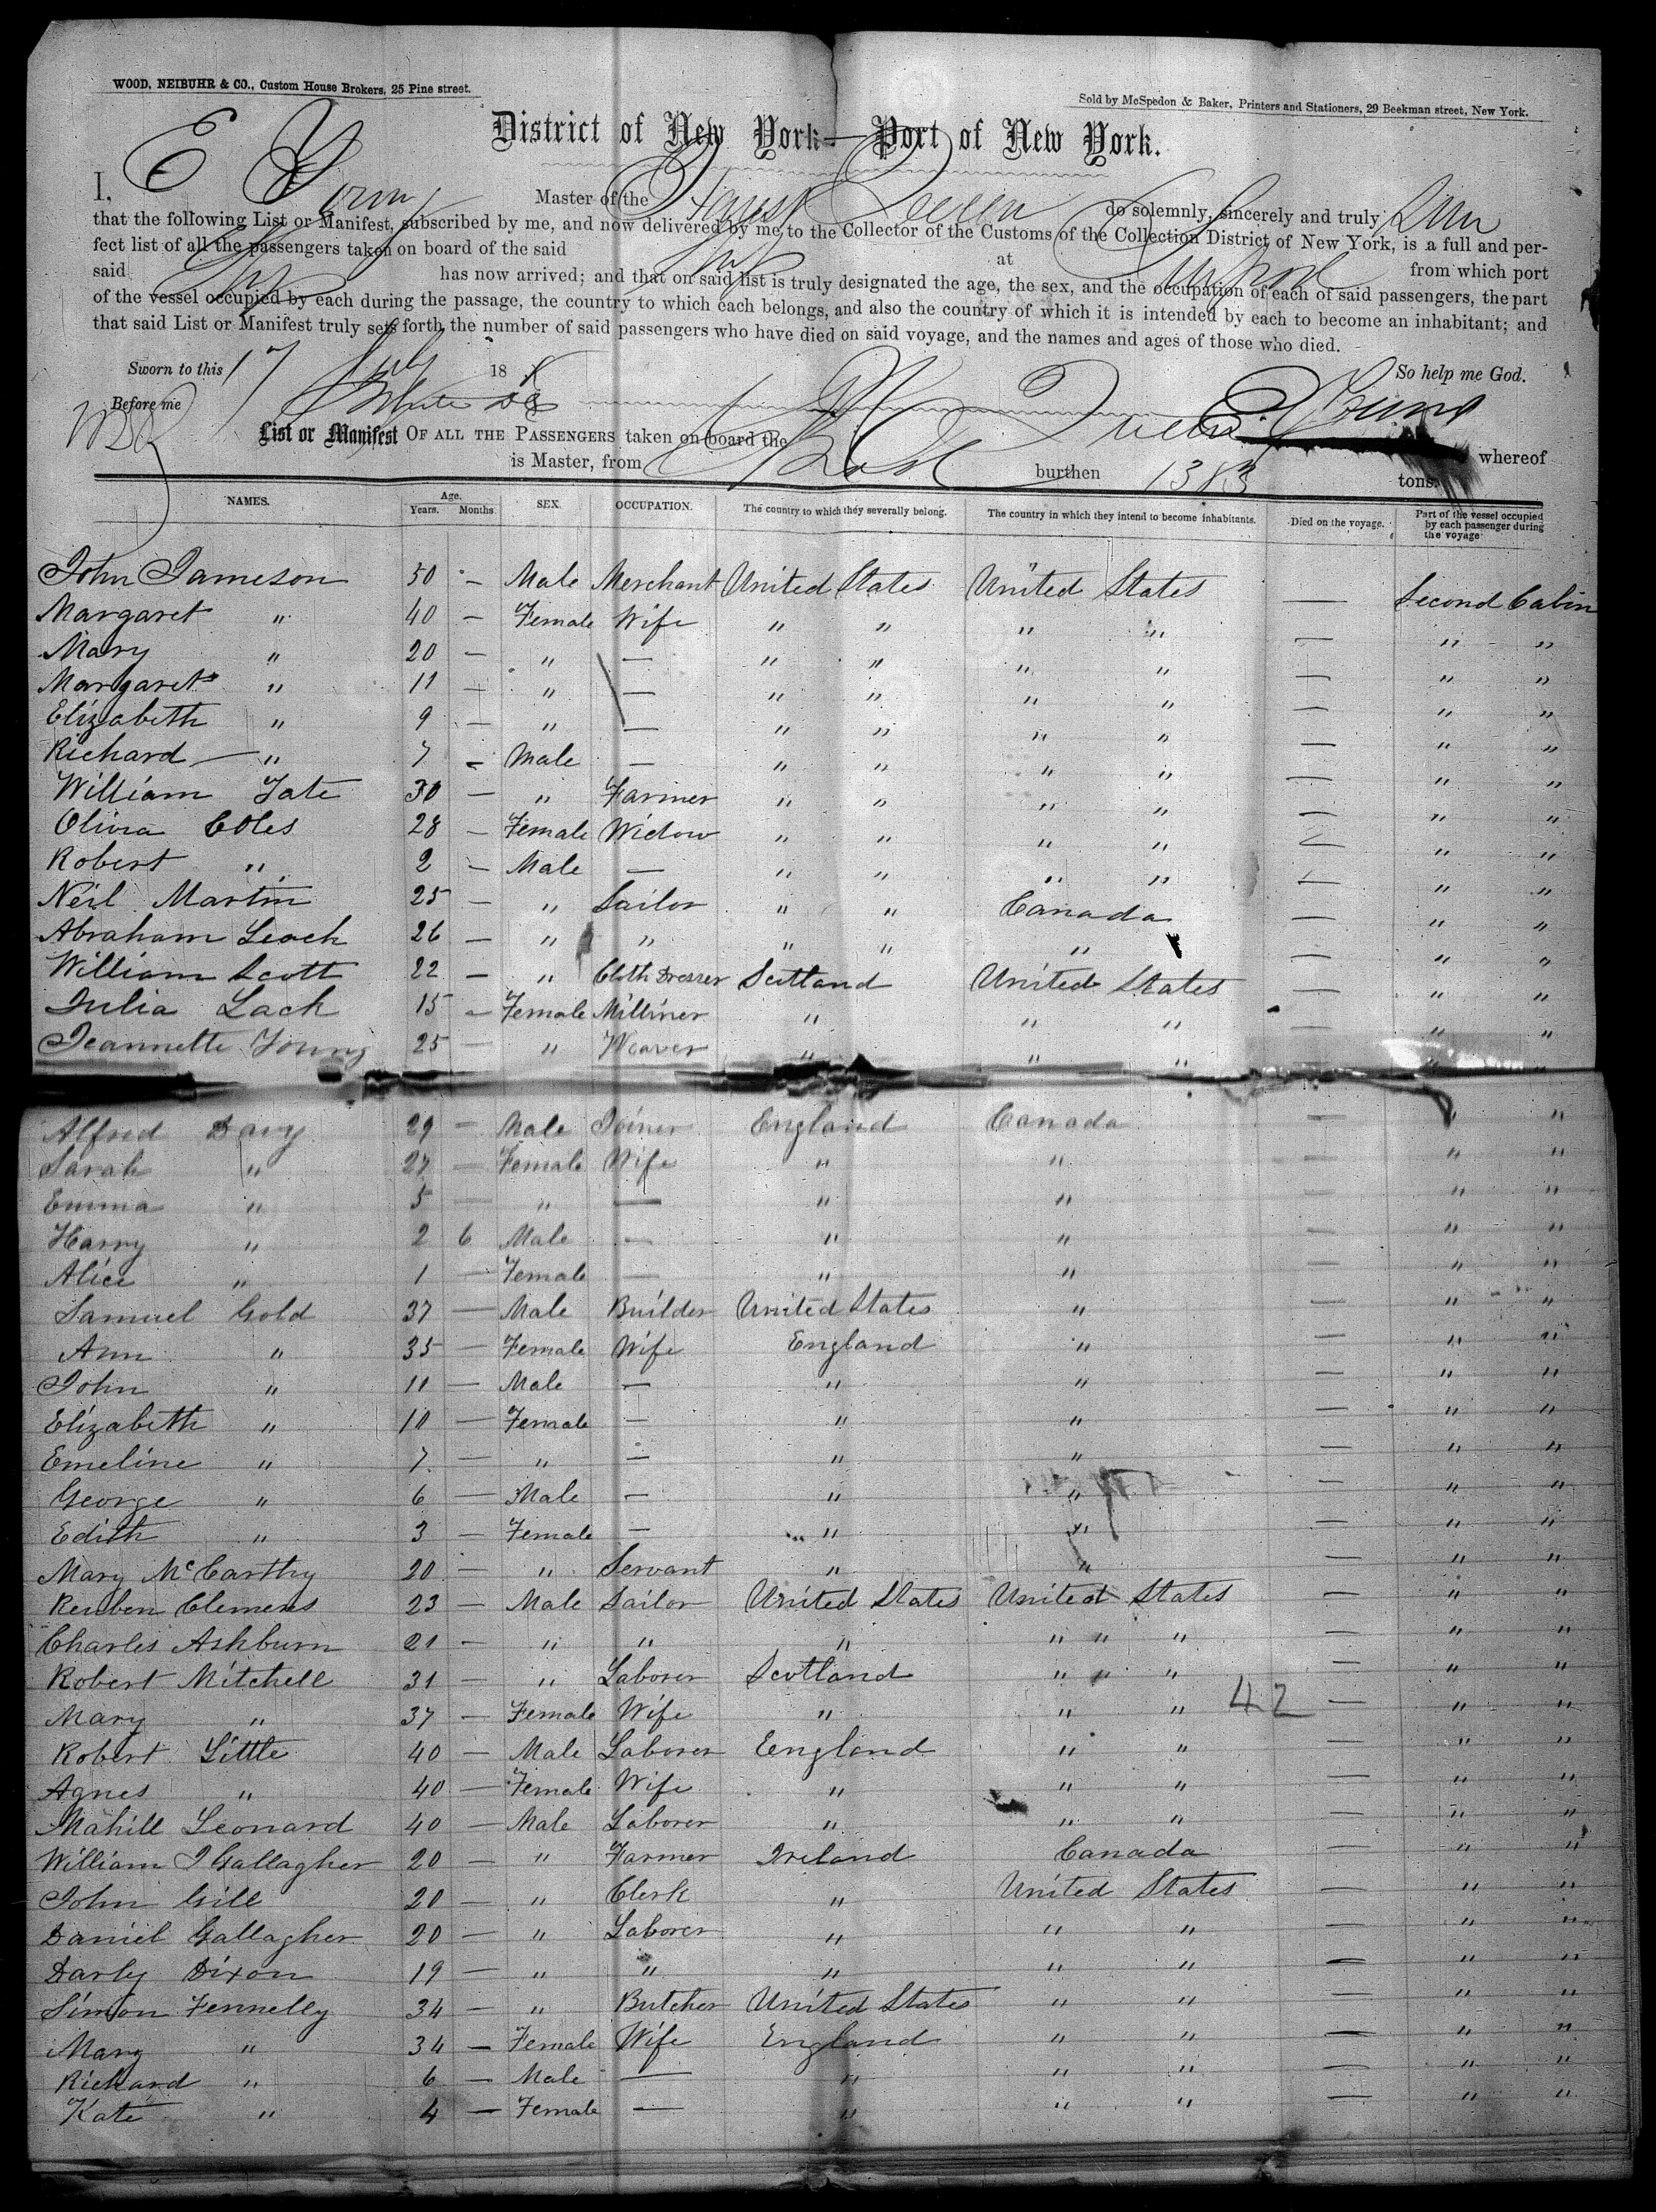 WOOD, NEIBUHR & CO., Custom House Brokers, 25 Pine street.
Sold by McSpedon & Baker, Printers and Stationers, 29 Beekman street, New York.
District of New York—Port of New York.
I, E Young Master of the Forest Queen do solemnly, sincerely and truly
that the following List or Manifest, subscribed by me, and now delivered by me to the Collector of the Customs of the Collection District of New York, is a full and per-
fect list of all the passengers taken on board of the said Ship at Liverpool from which port
said Ship has now arrived; and that on said list is truly designated the age, the sex, and the occupation of each of said passengers, the part
of the vessel occupied by each during the passage, the country to which each belongs, and also the country of which it is intended by each to become an inhabitant; and
that said List or Manifest truly sets forth the number of said passengers who have died on said voyage, and the names and ages of those who died.
Sworn to this 17 July 18 So help me God.
Before me E. Young
List or Manifest OF ALL THE PASSENGERS taken on board the Queen whereof
is Master, from burthen 1383 tons.
NAMES. Age. Years. Months SEX. OCCUPATION. The country to which they severally belong. The country in which they intend to become inhabitants. Died on the voyage. Part of the vessel occupied by each passenger during the voyage
John Jameson 50 — Male Merchant United States United States — Second Cabin
Margaret " 40 — Female Wife " " " " — " "
Mary " 20 — " — " " " " — " "
Margaret " 11 — " — " " " " — " "
Elizabeth " 9 — " — " " " " — " "
Richard — " 7 — Male — " " " " — " "
William Tate 30 — " Farmer " " " " — " "
Olivia Coles 28 — Female Widow " " " " — " "
Robert " 2 — Male — " " " " — " "
Neil Martin 25 — " Sailor " " Canada — " "
Abraham Leach 26 — " " " " " — " "
William Scott 22 — " Cloth Dresser Scotland United States — " "
Julia Lack 15 — Female Milliner " " " — " "
Jeannette Young 25 — " Weaver " " " " "
Alfred Davy 29 — Male Joiner England Canada — " "
Sarah " 27 — Female Wife " " — " "
Emma " 5 — " — " " — " "
Harry " 2 6 Male — " " — " "
Alice " 1 — Female — " " — " "
Samuel Gold 37 — Male Builder United States " — " "
Ann " 35 — Female Wife England " — " "
John " 11 — Male — " " — " "
Elizabeth " 10 — Female — " " — " "
Emeline " 7 — " — " " — " "
George " 6 — Male — " " — " "
Edith " 3 — Female — " " — " "
Mary McCarthy 20 — " Servant " " — " "
Reuben Clemens 23 — Male Sailor United States United States — " "
Charles Ashburn 21 — " " " " " " — " "
Robert Mitchell 31 — " Laborer Scotland " " " — " "
Mary " 37 — Female Wife " " " 42 — " "
Robert Little 40 — Male Laborer England " " — " "
Agnes " 40 — Female Wife " " " — " "
Mahill Leonard 40 — Male Laborer " " " — " "
William J Gallagher 20 — " Farmer Ireland Canada — " "
John Gill 20 — " Clerk " United States — " "
Daniel Gallagher 20 — " Laborer " " " — " "
Darly Dixon 19 — " " " " " — " "
Simon Fennelly 34 — " Butcher United States " " — " "
Mary " 34 — Female Wife England " " — " "
Richard " 6 — Male — " " " — " "
Kate " 4 — Female — " " " — " "